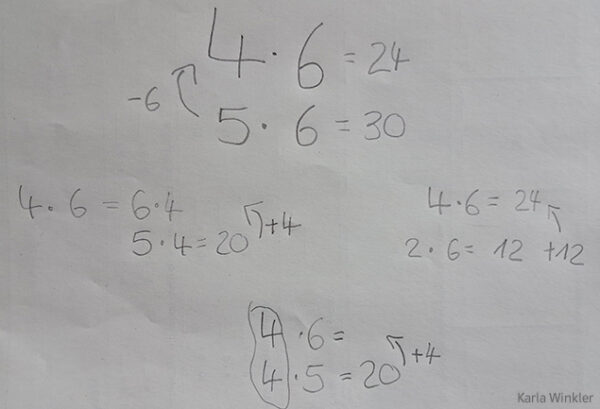 4 · 6 = 24
-6
5 · 6 = 30
4 · 6 = 6 · 4
5 · 4 = 20 +4
4 · 6 = 24
2 · 6 = 12 +12
4 · 6 =
4 · 5 = 20 +4
Karla Winkler